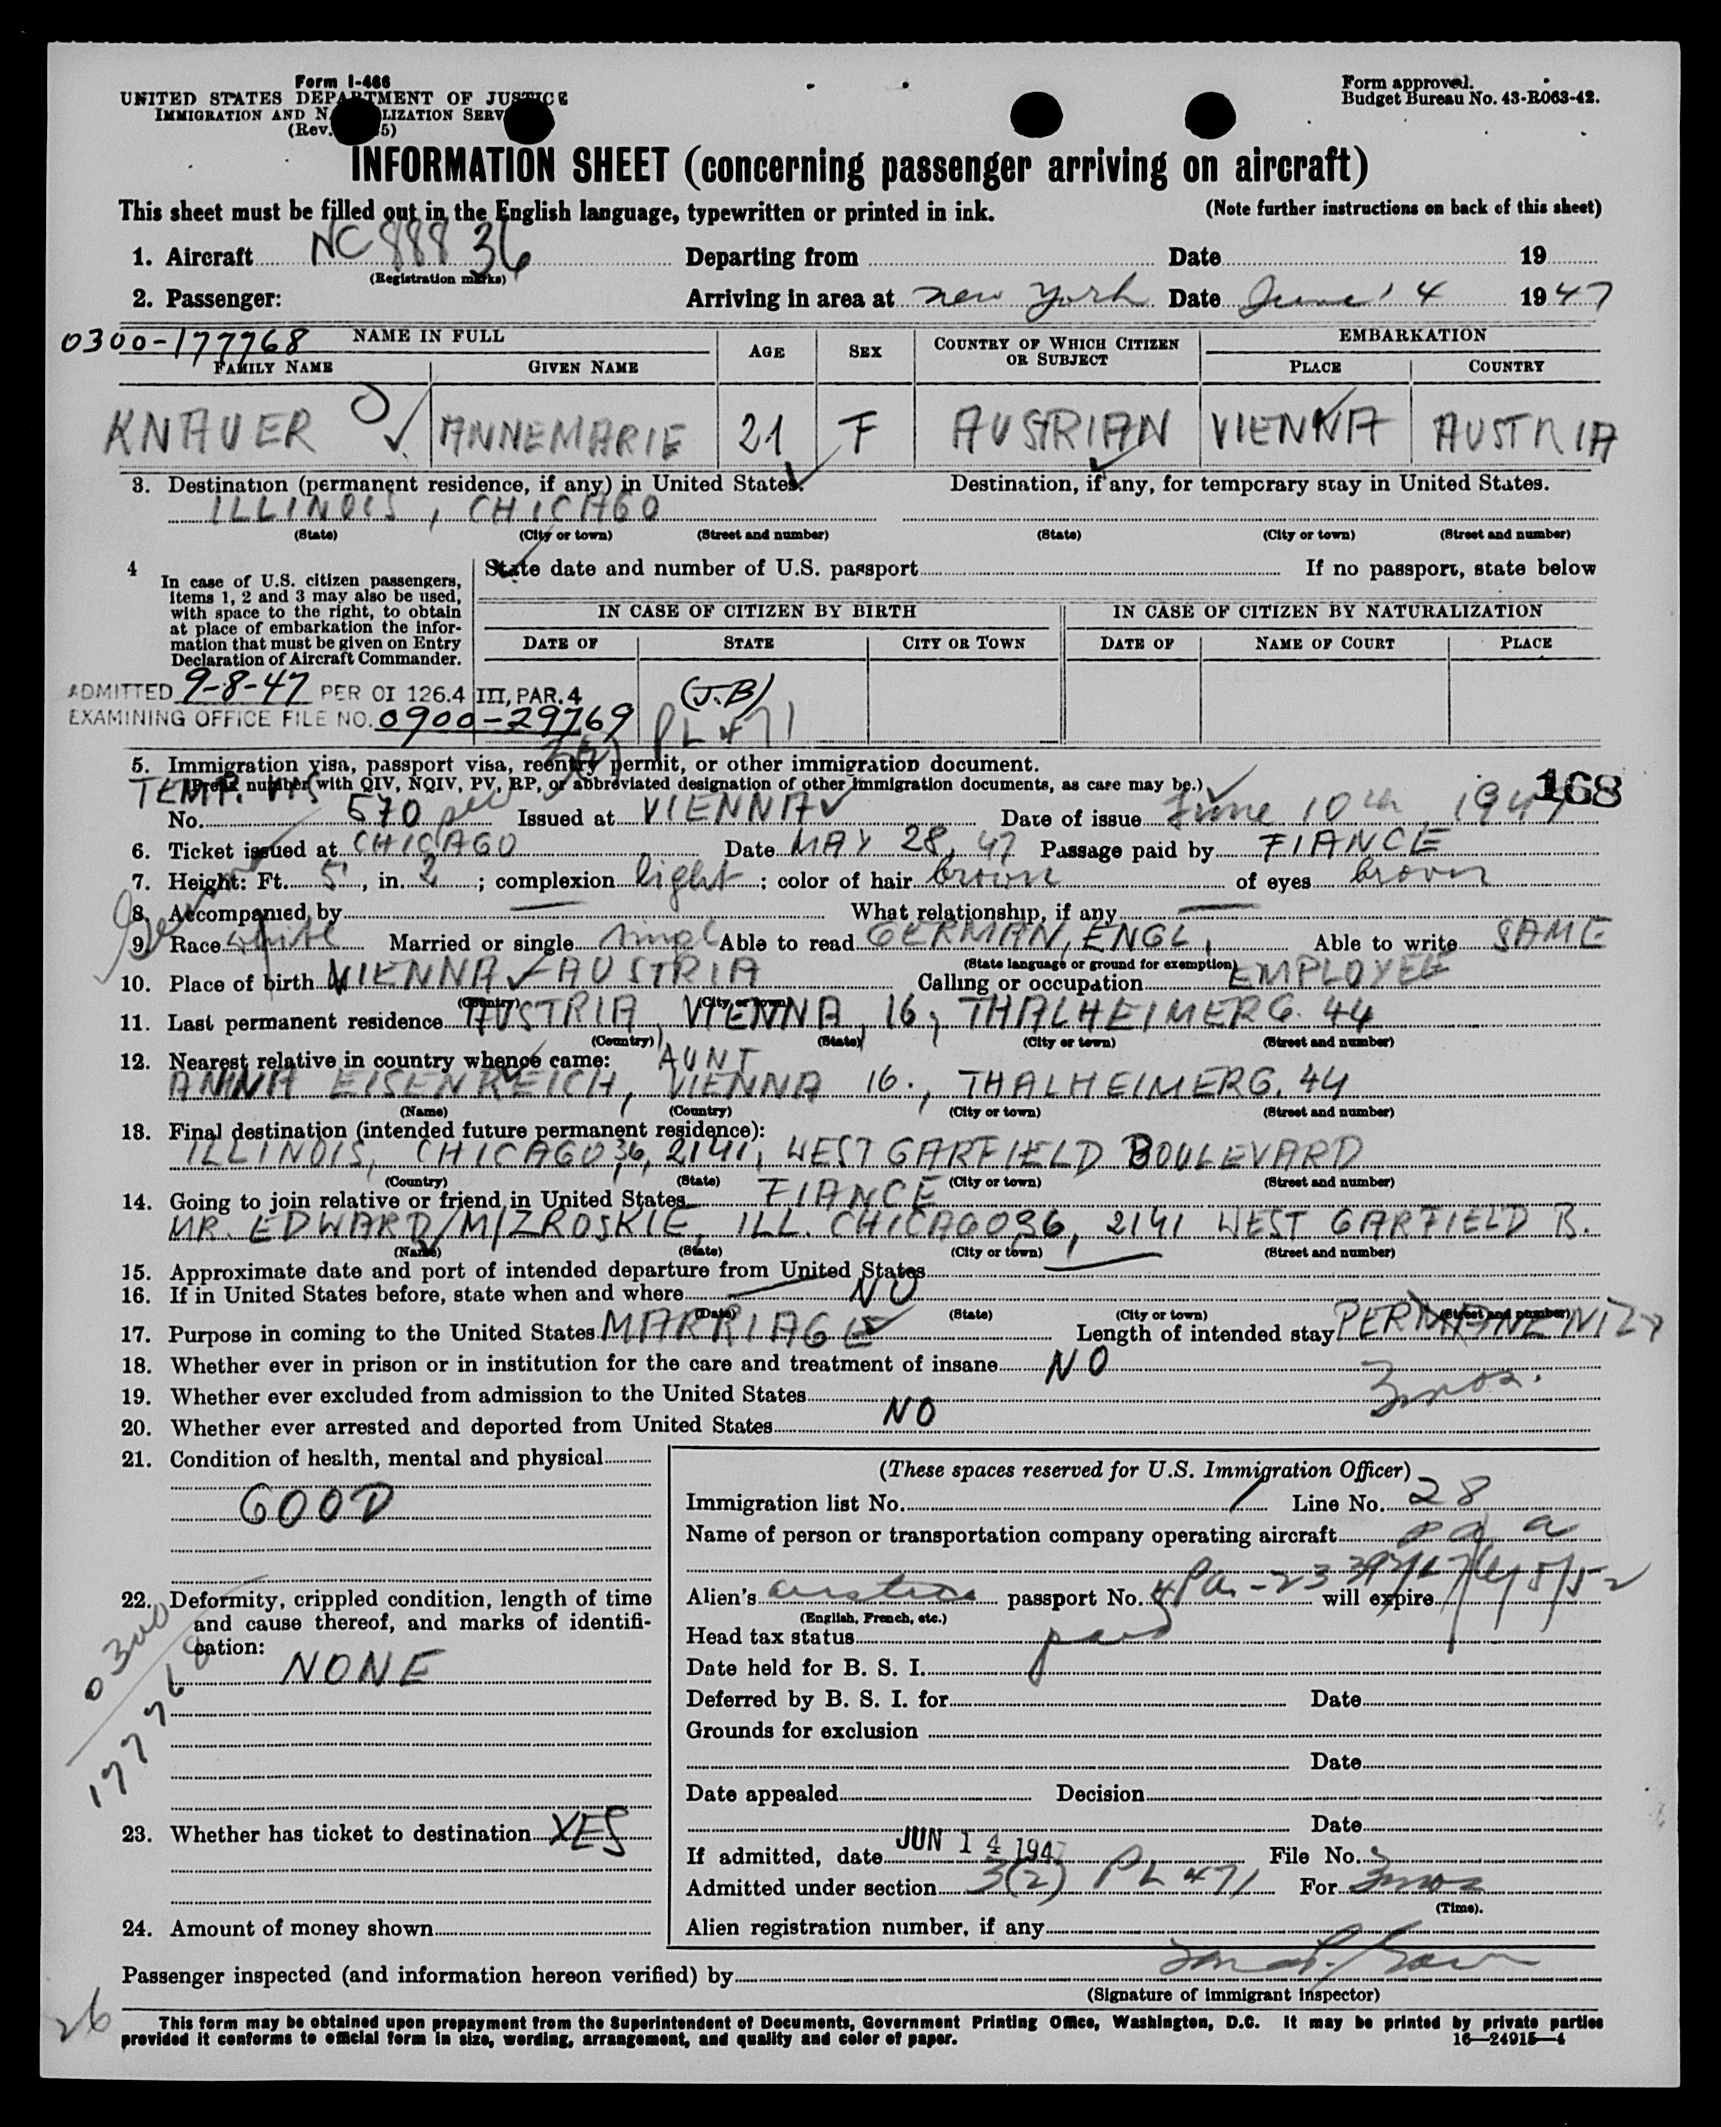 Form I-466
UNITED STATES DEPARTMENT OF JUSTICE
IMMIGRATION AND NATURALIZATION SERV
(Rev. 5)
Form approved.
Budget Bureau No. 43-R063-42.
INFORMATION SHEET (concerning passenger arriving on aircraft)
This sheet must be filled out in the English language, typewritten or printed in ink. (Note further instructions on back of this sheet)
1. Aircraft NC 88836 Departing from Date 19
(Registration marks)
2. Passenger: Arriving in area at New York Date June 14 1947
0300-177768 NAME IN FULL AGE SEX COUNTRY OF WHICH CITIZEN OR SUBJECT EMBARKATION
FAMILY NAME GIVEN NAME PLACE COUNTRY
KNAUER ANNEMARIE 21 F AUSTRIAN VIENNA AUSTRIA
3. Destination (permanent residence, if any) in United States. Destination, if any, for temporary stay in United States.
ILLINOIS, CHICAGO
(State) (City or town) (Street and number) (State) (City or town) (Street and number)
4 In case of U.S. citizen passengers, items 1, 2 and 3 may also be used, with space to the right, to obtain at place of embarkation the information that must be given on Entry Declaration of Aircraft Commander.
State date and number of U.S. passport If no passport, state below
IN CASE OF CITIZEN BY BIRTH IN CASE OF CITIZEN BY NATURALIZATION
DATE OF STATE CITY OR TOWN DATE OF NAME OF COURT PLACE
ADMITTED 9-8-47 PER OI 126.4 III, PAR. 4 (J.B)
EXAMINING OFFICE FILE NO. 0900-29769
3(2) PL 471
5. Immigration visa, passport visa, reentry permit, or other immigration document.
(Prefix number with QIV, NQIV, PV, RP, or abbreviated designation of other immigration documents, as case may be.)
TEMP. VIS 168
No. 570 Issued at VIENNA Date of issue June 10th, 1947
6. Ticket issued at CHICAGO Date MAY 28, 47 Passage paid by FIANCE
7. Height: Ft. 5, in. 2; complexion light; color of hair brown of eyes brown
8. Accompanied by — What relationship, if any —
9. Race white Married or single singl Able to read GERMAN, ENGL. Able to write SAME
(State language or ground for exemption)
10. Place of birth VIENNA - AUSTRIA Calling or occupation EMPLOYEE
(Country) (City or town)
11. Last permanent residence AUSTRIA, VIENNA, 16, THALHEIMERG. 44
(Country) (State) (City or town) (Street and number)
12. Nearest relative in country whence came: AUNT
ANNA EISENREICH, VIENNA 16., THALHEIMERG. 44
(Name) (Country) (City or town) (Street and number)
13. Final destination (intended future permanent residence):
ILLINOIS, CHICAGO 36, 2141, WEST GARFIELD BOULEVARD
(Country) (State) (City or town) (Street and number)
14. Going to join relative or friend in United States FIANCE
MR. EDWARD MIZROSKIE, ILL. CHICAGO 36, 2141 WEST GARFIELD B.
(Name) (State) (City or town) (Street and number)
15. Approximate date and port of intended departure from United States —
16. If in United States before, state when and where NO
(Date) (State) (City or town) (Street and number)
17. Purpose in coming to the United States MARRIAGE Length of intended stay PERMANENTLY
18. Whether ever in prison or in institution for the care and treatment of insane NO
3 mos.
19. Whether ever excluded from admission to the United States
20. Whether ever arrested and deported from United States NO
21. Condition of health, mental and physical
GOOD
22. Deformity, crippled condition, length of time and cause thereof, and marks of identification:
NONE
0300
177768
23. Whether has ticket to destination YES
24. Amount of money shown
(These spaces reserved for U.S. Immigration Officer)
Immigration list No. 1 Line No. 28
Name of person or transportation company operating aircraft P a a
Alien's passport No. will expire
(English, French, etc.)
Head tax status paid
Date held for B. S. I.
Deferred by B. S. I. for Date
Grounds for exclusion
Date
Date appealed Decision
Date
If admitted, date JUN 14 194 File No.
Admitted under section 3(2) PL 471 For 3 mos
(Time).
Alien registration number, if any
Passenger inspected (and information hereon verified) by
(Signature of immigrant inspector)
26
This form may be obtained upon prepayment from the Superintendent of Documents, Government Printing Office, Washington, D.C. It may be printed by private parties
provided it conforms to official form in size, wording, arrangement, and quality and color of paper. 16—24915-4